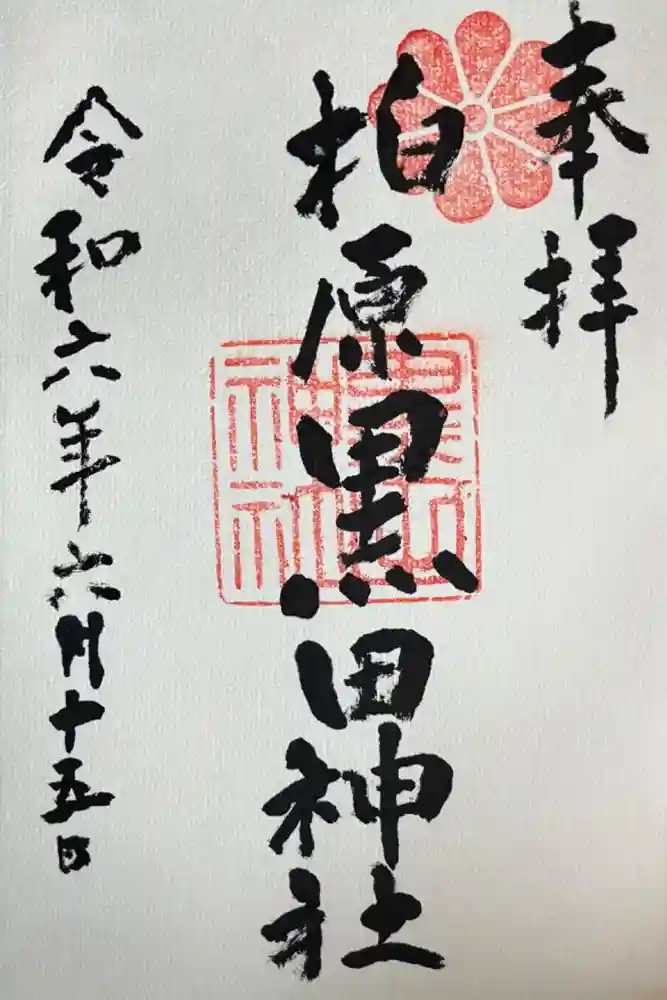 奉拝
柏原黒田神社
令和六年六月十五日